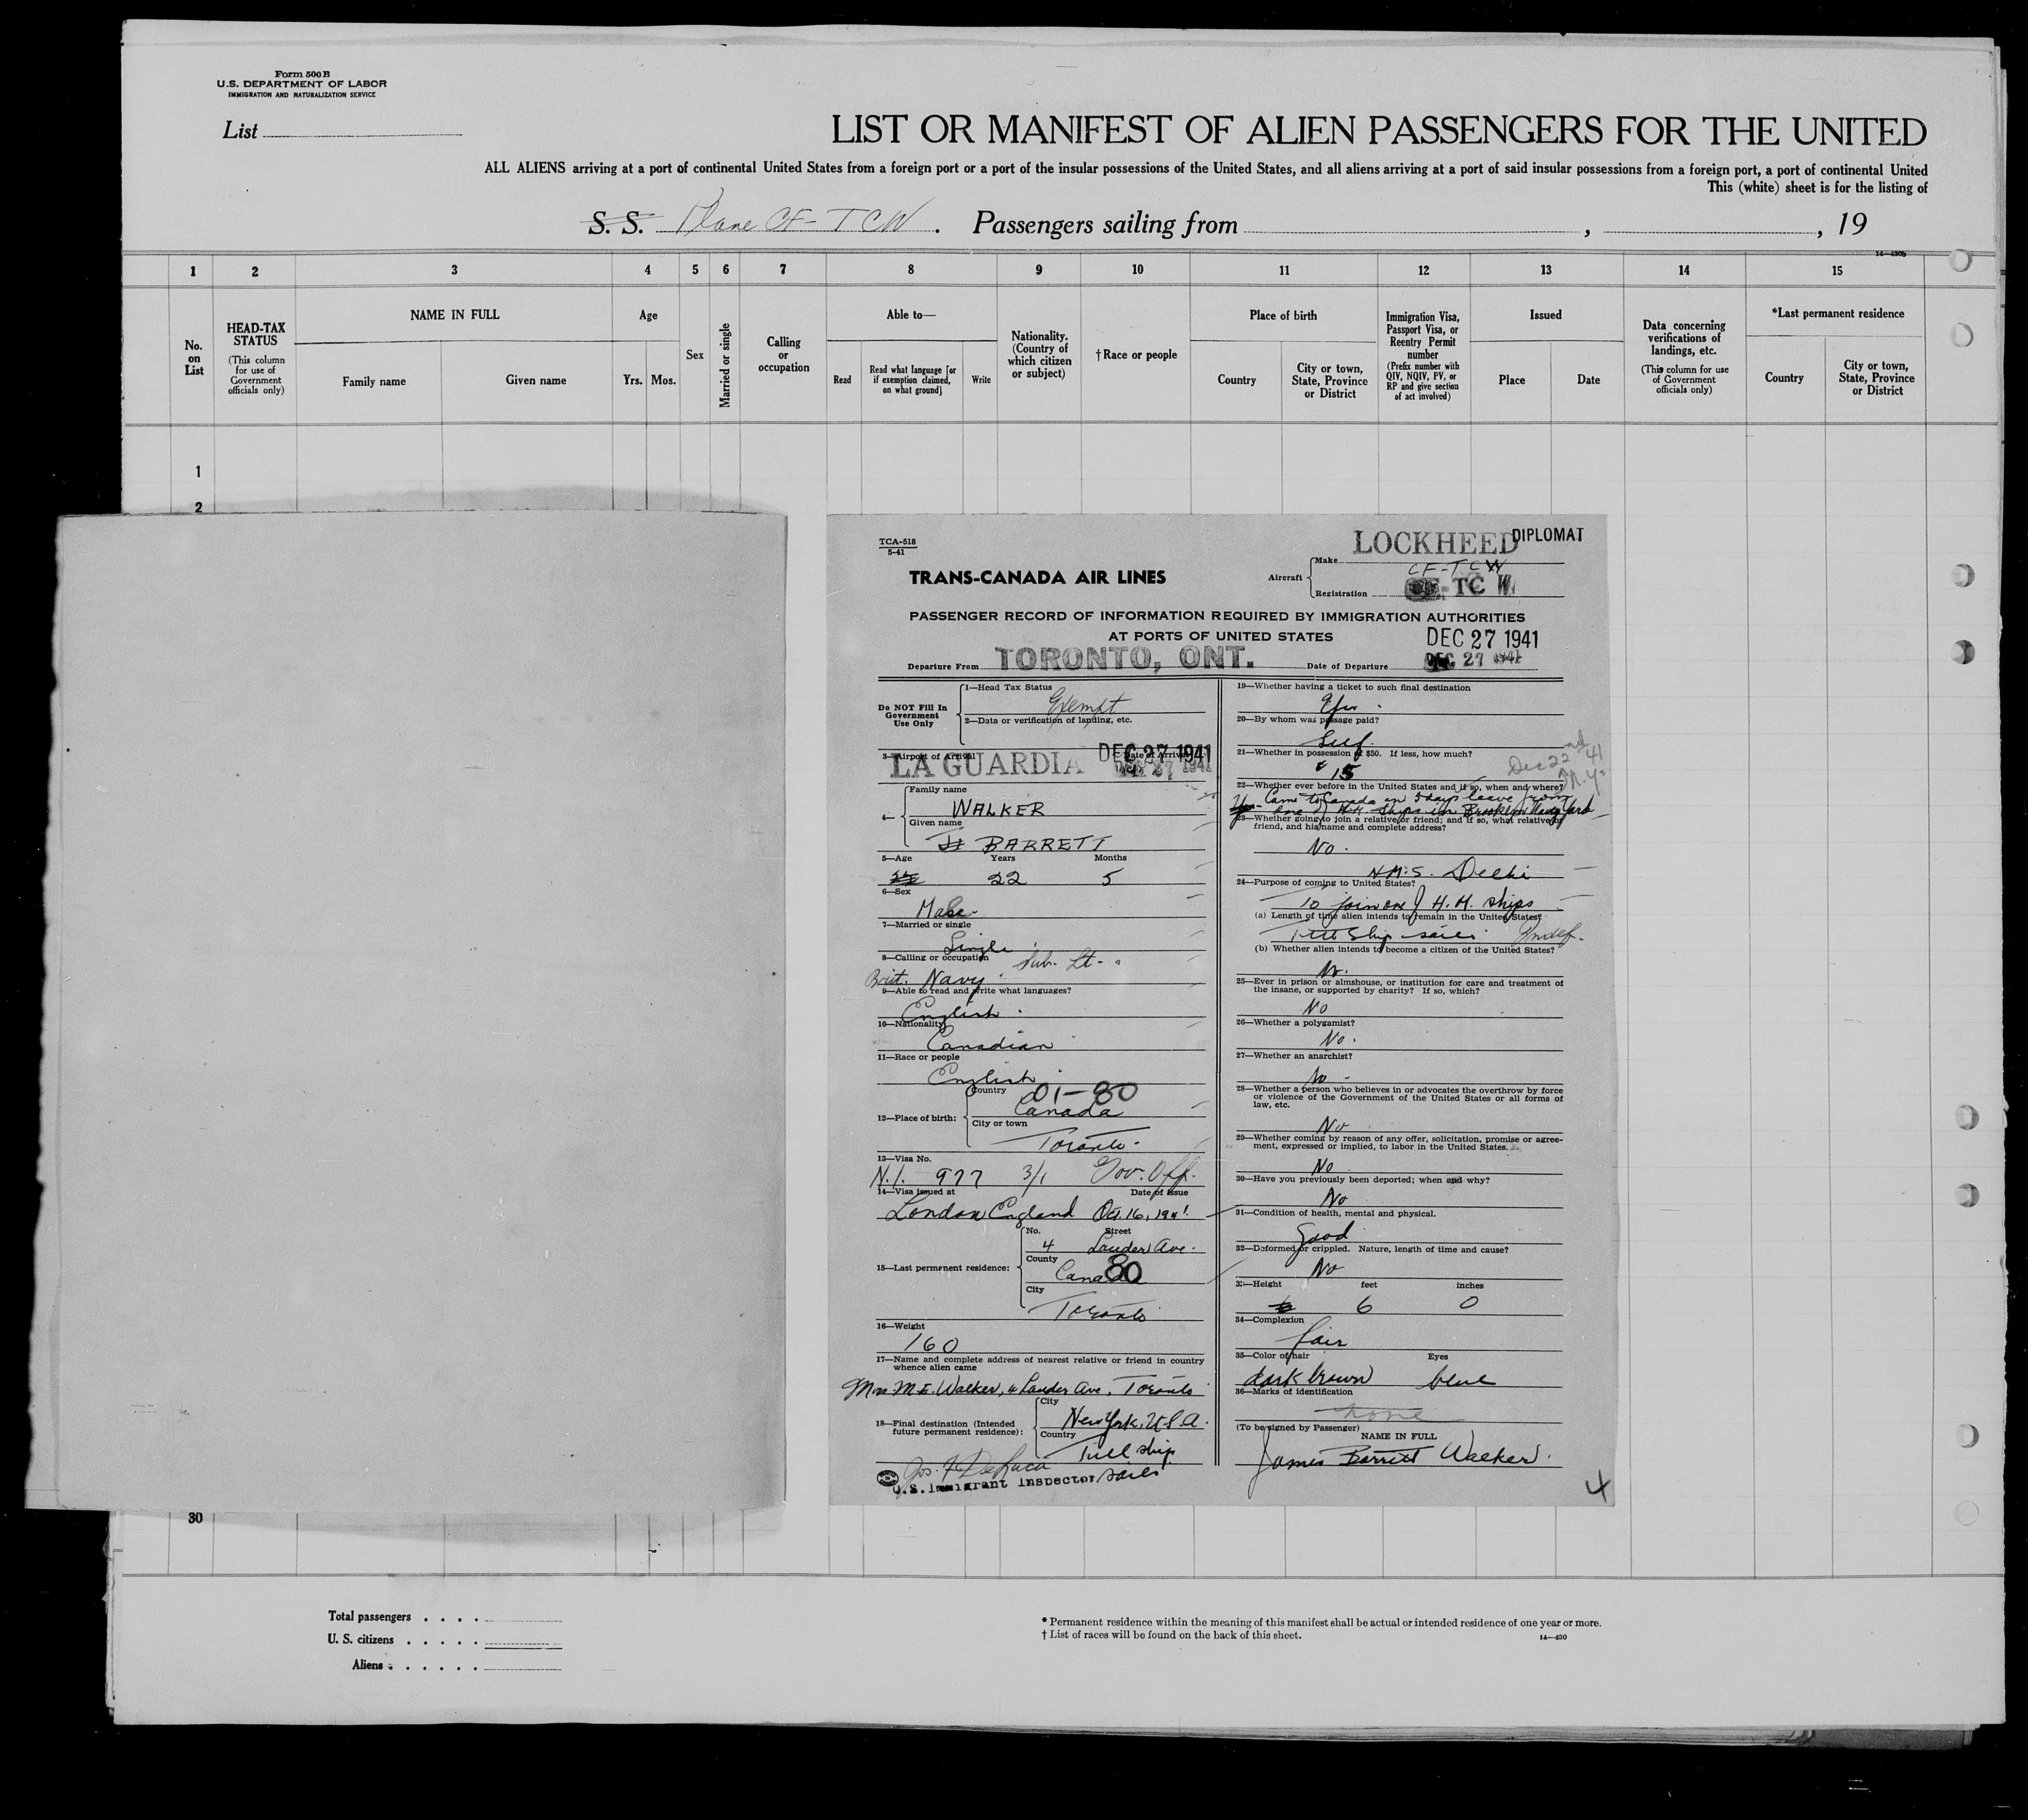 Form 500 B
U.S. DEPARTMENT OF LABOR
IMMIGRATION AND NATURALIZATION SERVICE
List
LIST OR MANIFEST OF ALIEN PASSENGERS FOR THE UNITED
ALL ALIENS arriving at a port of continental United States from a foreign port or a port of the insular possessions of the United States, and all aliens arriving at a port of said insular possessions from a foreign port, a port of continental United
This (white) sheet is for the listing of
S. S. Plane CF-TCW. Passengers sailing from , , 19
14—430b
1 2 3 4 5 6 7 8 9 10 11 12 13 14 15
No. on List
HEAD-TAX STATUS
(This column for use of Government officials only)
NAME IN FULL
Family name
Given name
Age
Yrs. Mos.
Sex
Married or single
Calling or occupation
Able to—
Read
Read what language [or if exemption claimed, on what ground]
Write
Nationality. (Country of which citizen or subject)
†Race or people
Place of birth
Country
City or town, State, Province or District
Immigration Visa, Passport Visa, or Reentry Permit number
(Prefix number with QIV, NQIV, PV, or RP and give section of act involved)
Issued
Place
Date
Data concerning verifications of landings, etc.
(This column for use of Government officials only)
*Last permanent residence
Country
City or town, State, Province or District
1
2
TCA-518
5-41
LOCKHEED DIPLOMAT
TRANS-CANADA AIR LINES
Aircraft
Make
CF-TCW
Registration CF-TCW
PASSENGER RECORD OF INFORMATION REQUIRED BY IMMIGRATION AUTHORITIES
AT PORTS OF UNITED STATES
DEC 27 1941
Departure From TORONTO, ONT. Date of Departure DEC 27 1941
Do NOT Fill In Government Use Only
1—Head Tax Status
Exempt
2—Data or verification of landing, etc.
3—Airport of Arrival
LA GUARDIA
Date of Arrival
DEC 27 1941
DEC 27 1941
4—
Family name
WALKER
Given name
BARRETT
5—Age Years Months
22 5
6—Sex
Male
7—Married or single
Single
8—Calling or occupation Sub. Lt.
Brit. Navy
9—Able to read and write what languages?
English
10—Nationality
Canadian
11—Race or people
English
12—Place of birth:
Country 01-80
Canada
City or town
Toronto
13—Visa No.
N.I. 977 3/1 Gov. Off.
14—Visa issued at Date of issue
London England Oct. 16, 1941
15—Last permanent residence:
No. Street
4 Lauder Ave.
County
Canada 80
City
Toronto
16—Weight
160
17—Name and complete address of nearest relative or friend in country whence alien came
Mrs. M. E. Walker, 4 Lauder Ave. Toronto
18—Final destination (Intended future permanent residence):
City
New York, U.S.A.
Country
Till ship sails
U.S. Immigrant Inspector
19—Whether having a ticket to such final destination
20—By whom was passage paid?
Self.
21—Whether in possession of $50. If less, how much?
$15
Dec 22nd 41
N.Y.
22—Whether ever before in the United States and if so, when and where?
Came to Canada on 5 days leave from
one of H.M. Ships in Brooklyn Navy Yard
23—Whether going to join a relative or friend; and if so, what relative or friend, and his name and complete address?
No.
H.M.S. Delhi
24—Purpose of coming to United States?
To join one of H.M. ships
(a) Length of time alien intends to remain in the United States?
Till Ship sails Indef.
(b) Whether alien intends to become a citizen of the United States?
No.
25—Ever in prison or almshouse, or institution for care and treatment of the insane, or supported by charity? If so, which?
No
26—Whether a polygamist?
No.
27—Whether an anarchist?
No
28—Whether a person who believes in or advocates the overthrow by force or violence of the Government of the United States or all forms of law, etc.
No
29—Whether coming by reason of any offer, solicitation, promise or agreement, expressed or implied, to labor in the United States.
No
30—Have you previously been deported; when and why?
No
31—Condition of health, mental and physical.
Good
32—Deformed or crippled. Nature, length of time and cause?
No
33—Height feet inches
6 0
34—Complexion
fair
35—Color of hair Eyes
dark brown blue
36—Marks of identification
none
(To be signed by Passenger) NAME IN FULL
James Barrett Walker.
4
30
Total passengers
U. S. citizens
Aliens
* Permanent residence within the meaning of this manifest shall be actual or intended residence of one year or more.
† List of races will be found on the back of this sheet.
14—430